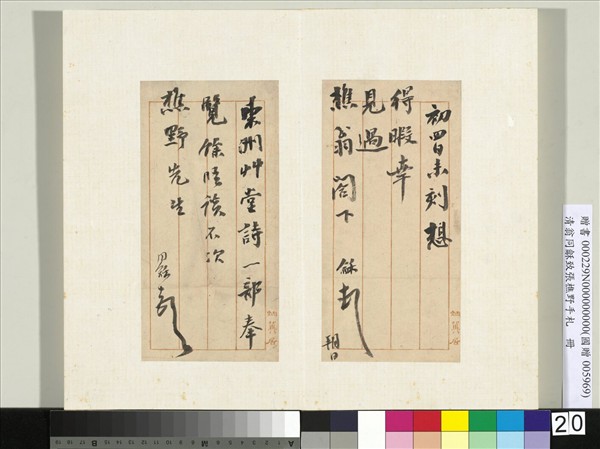 初四日未刻想
得暇幸
見過
樵翁閣下 龢頓
朔日
東洲艸堂詩一部奉
覽餘晤談不次
樵野先生
同龢頓
贈書 000229N000000000(國贈 005969)
清翁同龢致張樵野手札 冊
20
B
M
A